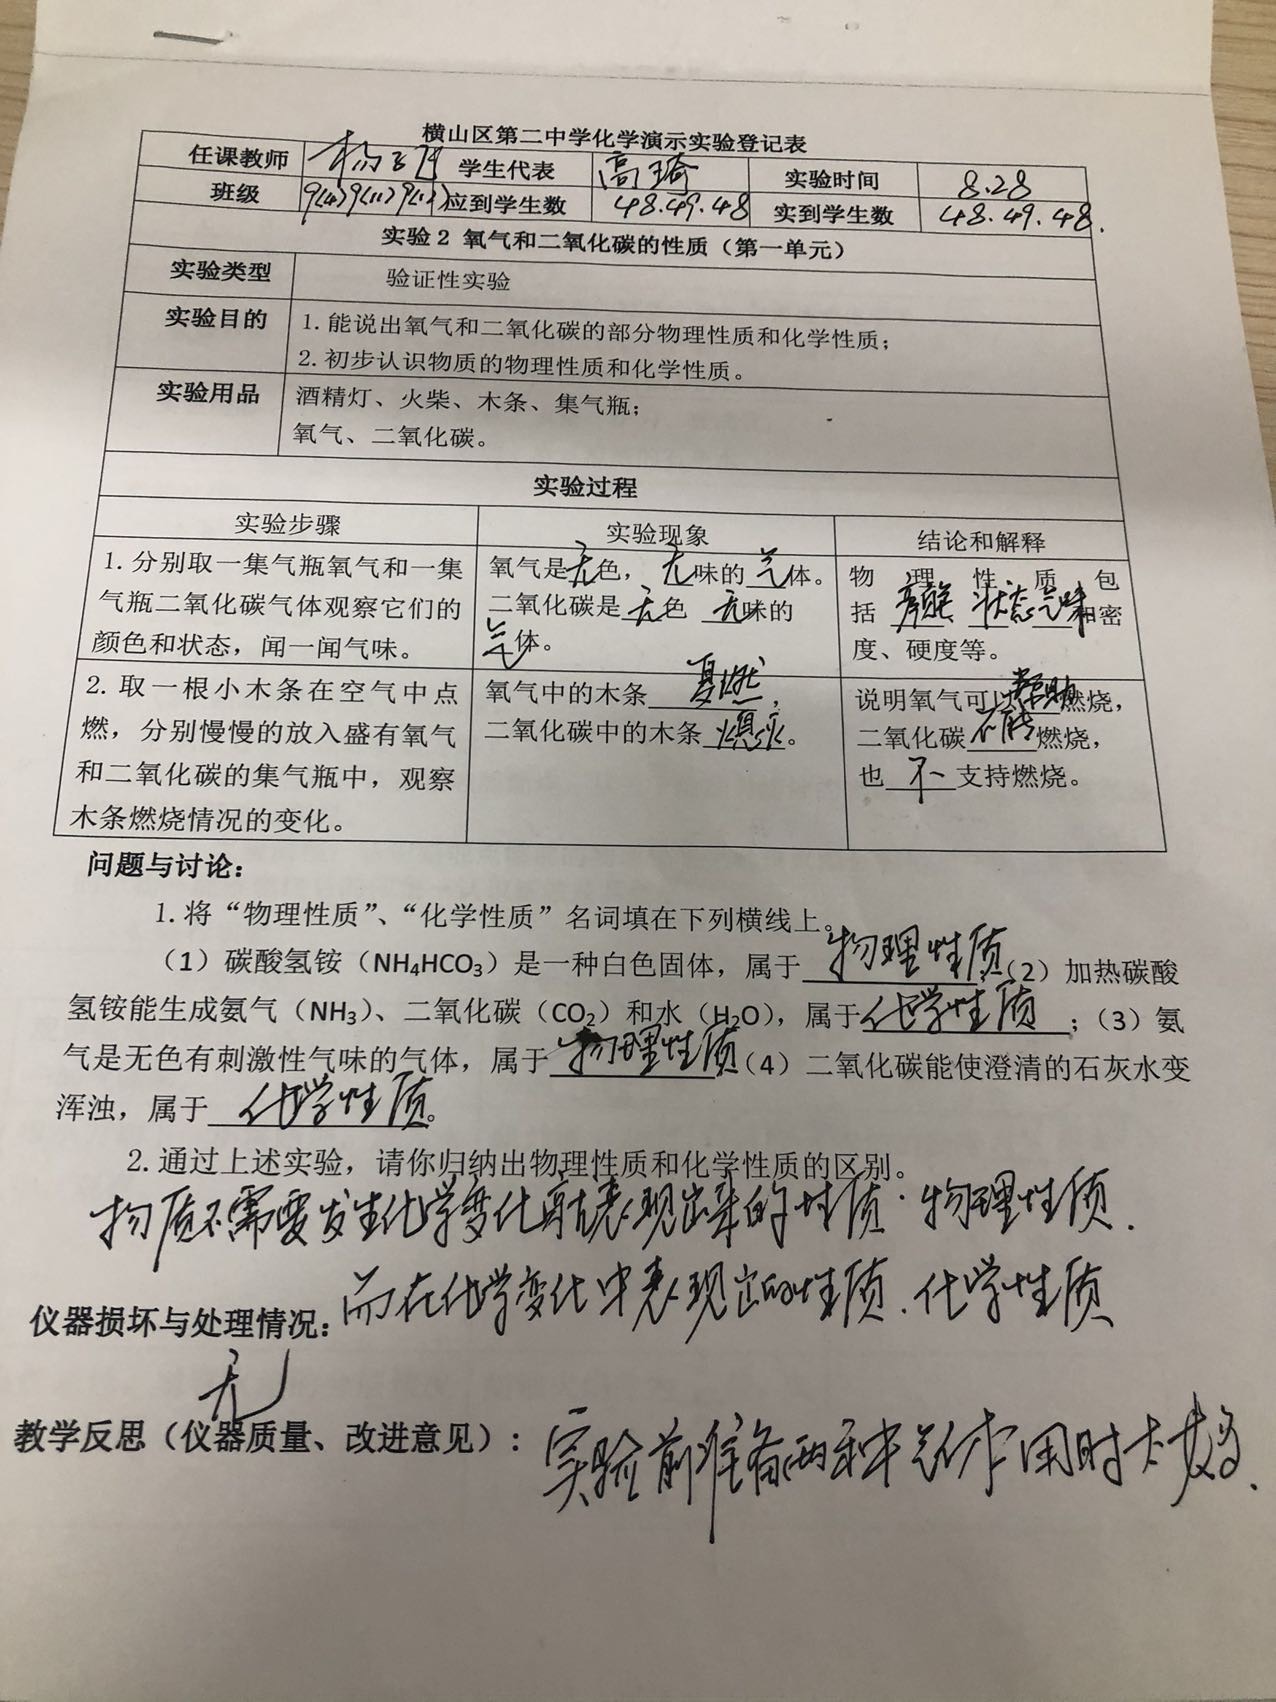 横山区第二中学化学演示实验登记表
任课教师 杨 学生代表 高琦 实验时间 8.28
班级 9(4)9(11)9(12) 应到学生数 48.49.48 实到学生数 48.49.48.
实验2 氧气和二氧化碳的性质（第一单元）
实验类型 验证性实验
实验目的 1.能说出氧气和二氧化碳的部分物理性质和化学性质；
2.初步认识物质的物理性质和化学性质。
实验用品 酒精灯、火柴、木条、集气瓶；
氧气、二氧化碳。
实验过程
实验步骤 实验现象 结论和解释
1.分别取一集气瓶氧气和一集
气瓶二氧化碳气体观察它们的
颜色和状态，闻一闻气味。
氧气是无色，无味的气体。
二氧化碳是无色 无味的
气体。
物理性质包
括 颜色 状态 气味 和密
度、硬度等。
2.取一根小木条在空气中点
燃，分别慢慢的放入盛有氧气
和二氧化碳的集气瓶中，观察
木条燃烧情况的变化。
氧气中的木条复燃，
二氧化碳中的木条熄灭。
说明氧气可以帮助燃烧，
二氧化碳不能燃烧，
也不支持燃烧。
问题与讨论：
1.将“物理性质”、“化学性质”名词填在下列横线上。
（1）碳酸氢铵（NH₄HCO₃）是一种白色固体，属于物理性质（2）加热碳酸
氢铵能生成氨气（NH₃）、二氧化碳（CO₂）和水（H₂O），属于化学性质；（3）氨
气是无色有刺激性气味的气体，属于物理性质（4）二氧化碳能使澄清的石灰水变
浑浊，属于化学性质。
2.通过上述实验，请你归纳出物理性质和化学性质的区别。
物质不需要发生化学变化就表现出来的性质.物理性质.
而在化学变化中表现出的性质.化学性质
仪器损坏与处理情况：
无
教学反思（仪器质量、改进意见）：实验前准备两种气体用时太多.